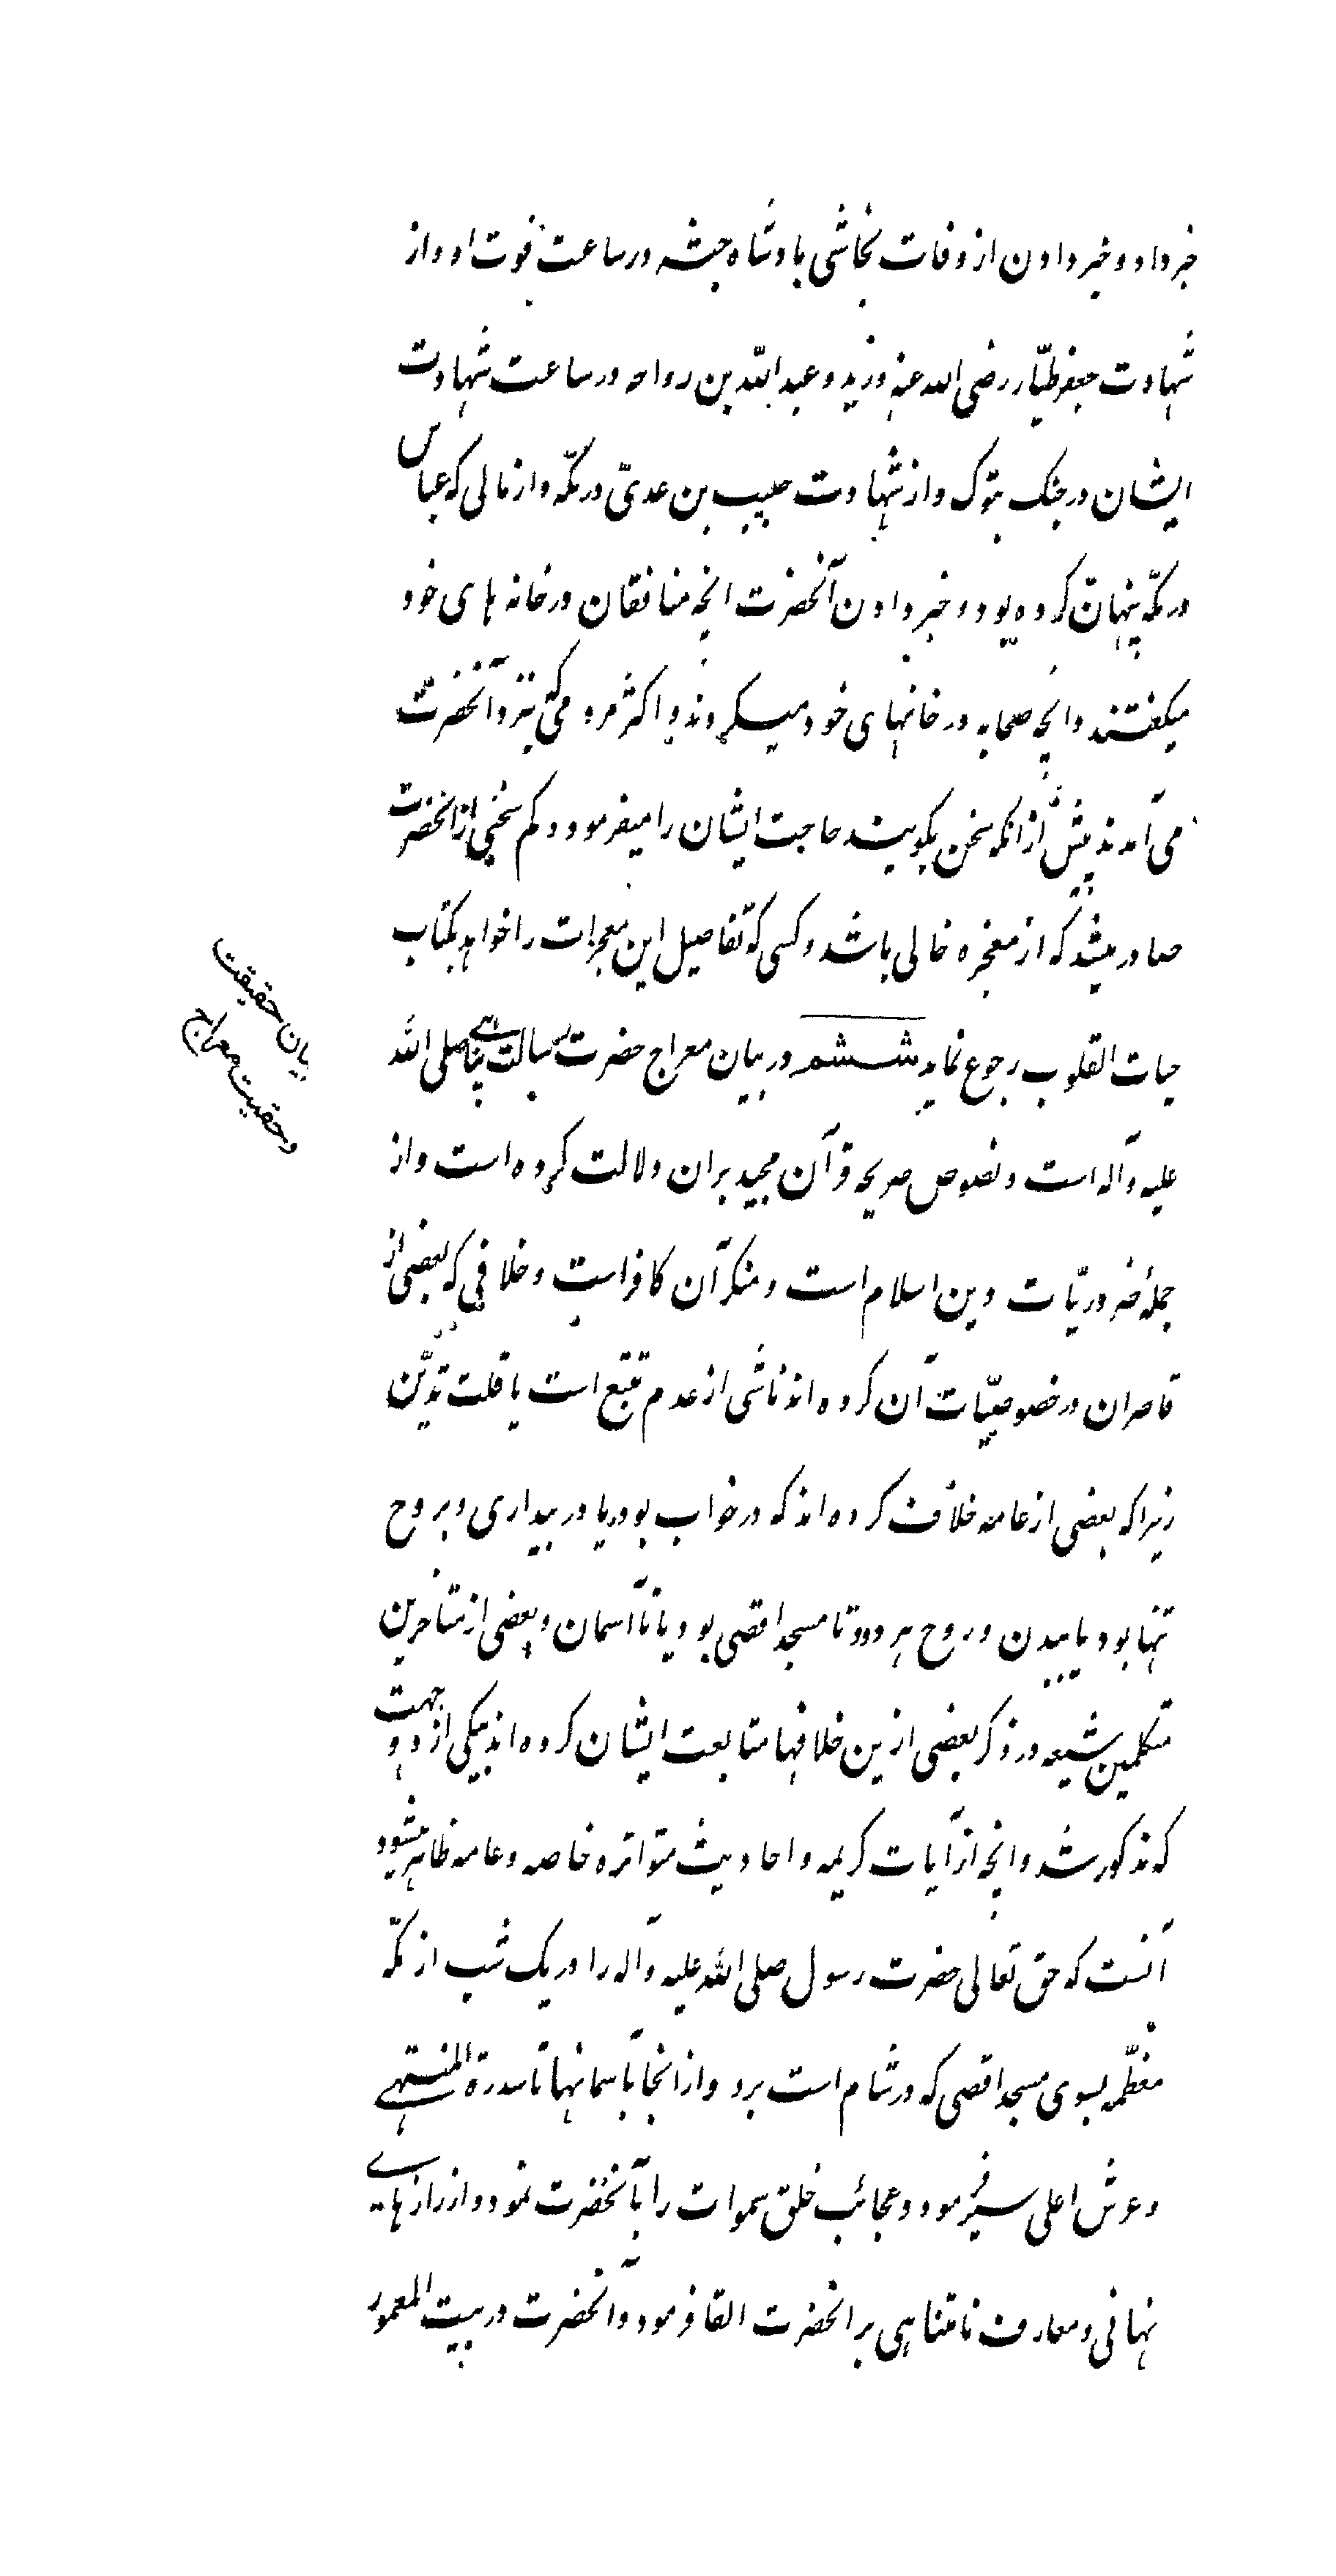 خبر داد و خبر دادن از وفات نجاشی پادشاه حبشه در ساعت فوت او و از
شهادت جعفر طیّار رضی الله عنه و زید و عبد الله بن رواحه در ساعت شهادت
ایشان در جنک تبوک و از شهادت حبیب بن عدیّ در مکّه و از مالی که عباس
در مکّه پنهان کرده بود و خبر دادن آنحضرت انچه منافقان در خانه های خود
میکفتند و انچه صحابه در خانهای خود میکردند و اکثر مردمی که بنزد آنحضرت
می آمدند پیش از انکه سخن بکویند حاجت ایشان را میفرمود و کم سخنی از انحضرت
صادر میشد که از معجزه خالی باشد و کسی که تفاصیل این معجزات را خواهد بکتاب
حیات القلوب رجوع نماید ششم در بیان معراج حضرت رسالت پناهی صلی الله
علیه و آله است و نصوص صریحه قرآن مجید بران دلالت کرده است و از
جملهٔ ضروریّات دین اسلام است و منکر آن کافر است و خلافی که بعضی از
قاصران در خصوصیّات آن کرده اند ناشی از عدم تتبّع است یا قلت تدیّن
زیرا که بعضی از عامه خلاف کرده اند که در خواب بود یا در بیداری و بروح
تنها بود یا ببدن و روح هر دو و تا مسجد اقصی بود یا تا آسمان و بعضی از متأخرین
متکلمین شیعه در ذکر بعضی ازین خلافها متابعت ایشان کرده اند بیکی از دو جهت
که مذکور شد و انچه از آیات کریمه و احادیث متواتره خاصه و عامه ظاهر میشود
آنست که حق تعالی حضرت رسول صلی الله علیه و آله را در یک شب از مکّه
معظّمه بسوی مسجد اقصی که در شام است برد و از انجا بآسمانها تا سدرة المنتهی
و عرش اعلی سیر فرمود و عجائب خلق سموات را بآنحضرت نمود و از رازهای
نهانی و معارف نامتناهی بر انحضرت القا فرمود و آنحضرت در بیت المعمور
بیان حقیقت
و حقیت معراج